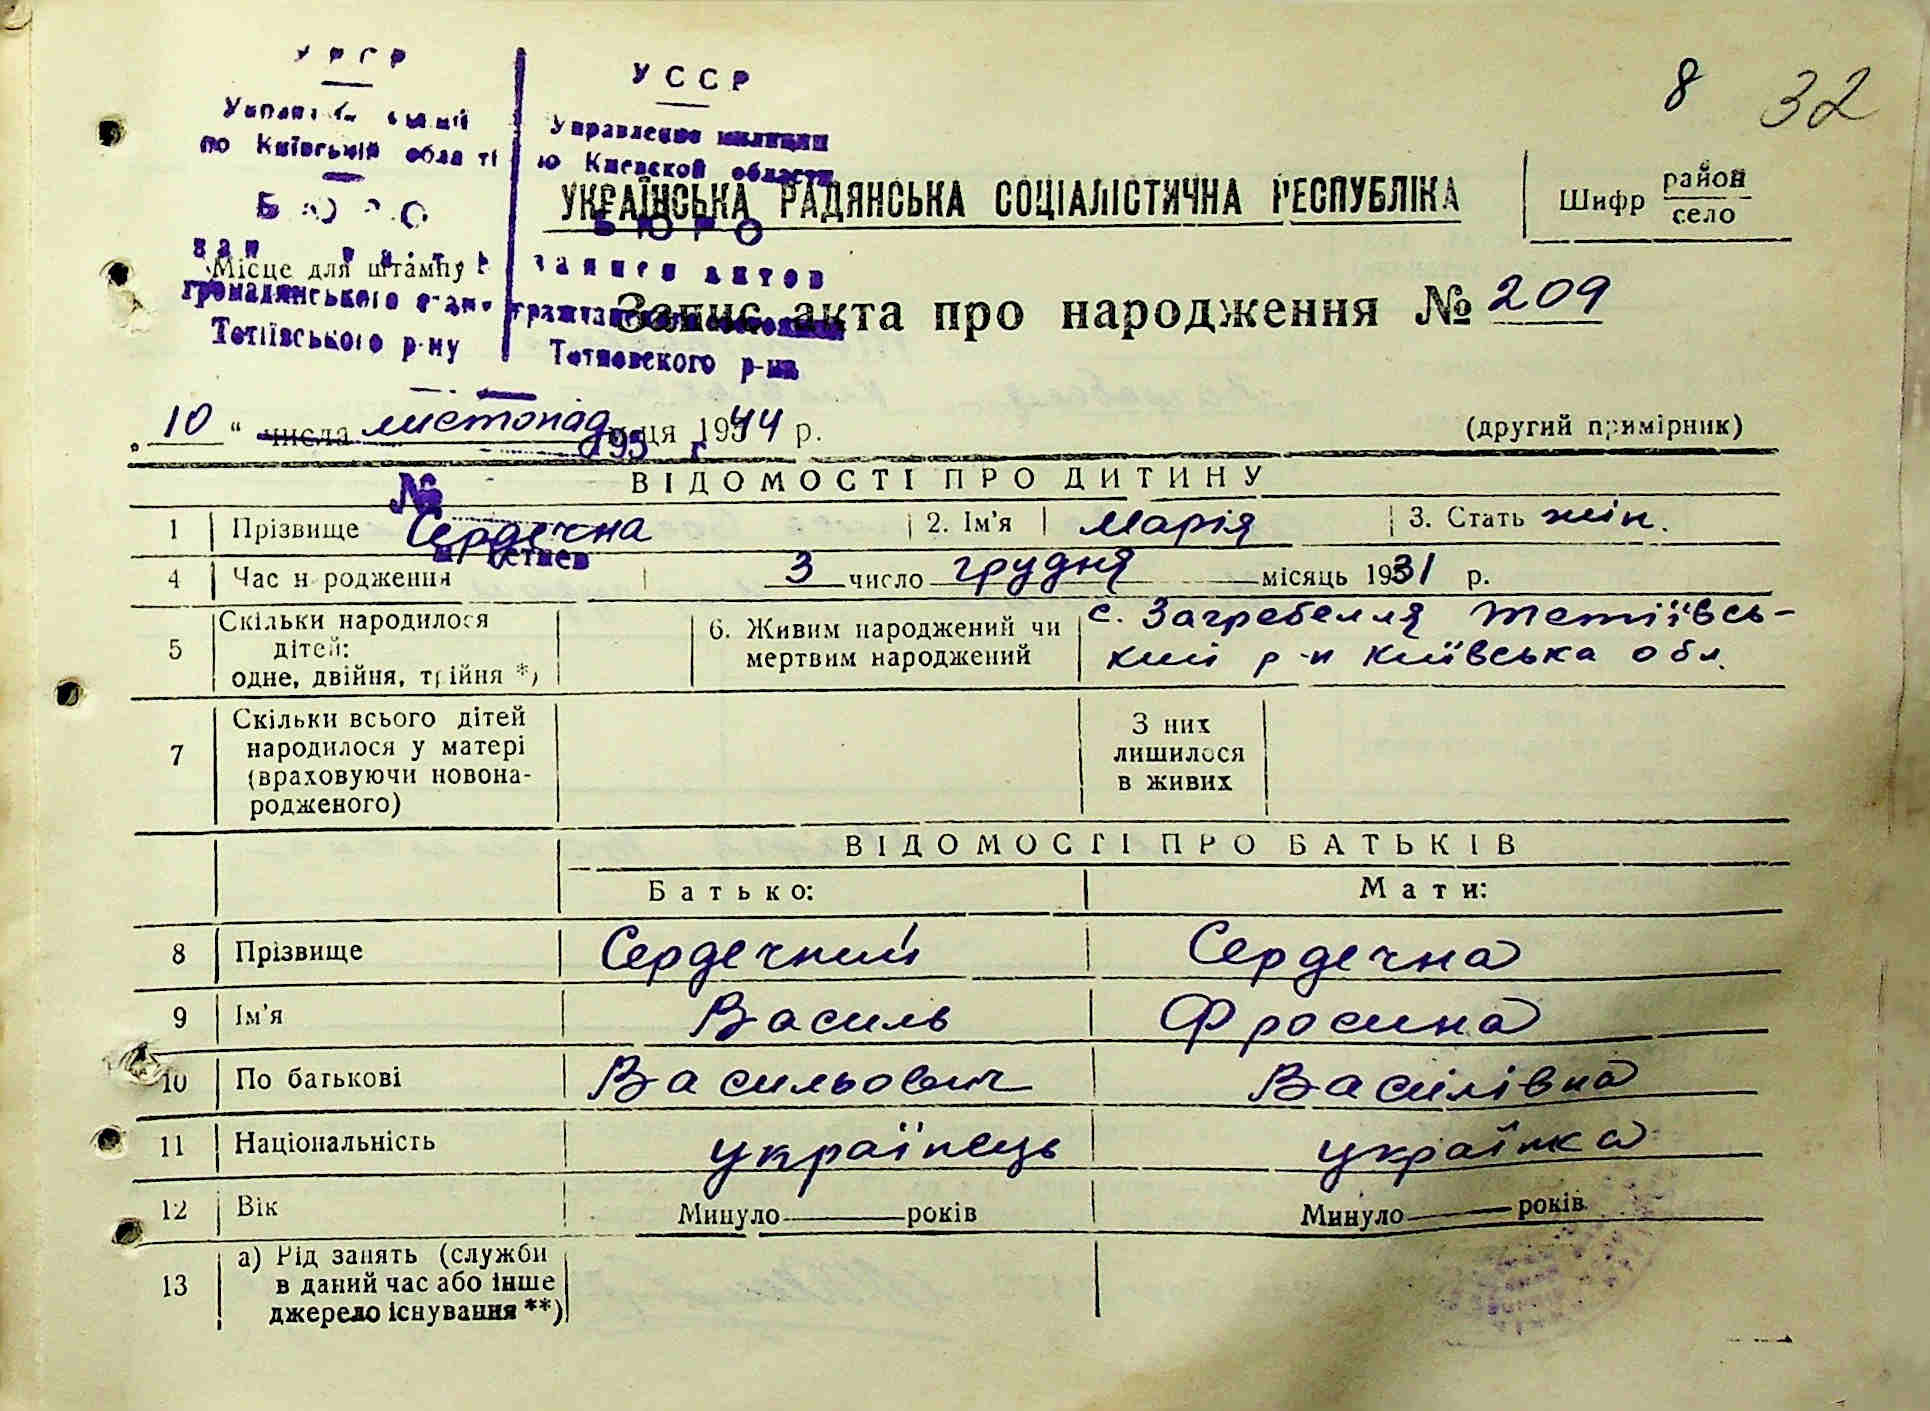 8 32
УРСР
УССР
Управление милиции
по Київській області
ю Киевской области
УКРАЇНСЬКА РАДЯНСЬКА СОЦІАЛІСТИЧНА РЕСПУБЛІКА
Шифр район
село
БЮРО
БЮРО
Місце для штампу
записи актов
громадянського
Запис акта про народження № 209
Тетіївського р-ну
Тетиевского р-на
„10“ числа листопад ця 1944 р.
(другий примірник)
195 г.
ВІДОМОСТІ ПРО ДИТИНУ
№
1 Прізвище Сердечна 2. Ім'я Марія 3. Стать жін.
4 Час народження 3 число грудня місяць 1931 р.
5 Скільки народилося дітей: одне, двійня, трійня *)
6. Живим народжений чи мертвим народжений
с. Загребелля Тетіївсь-
кий р-н Київська обл.
7 Скільки всього дітей народилося у матері (враховуючи новона-родженого)
З них лишилося в живих
ВІДОМОСТІ ПРО БАТЬКІВ
Батько: Мати:
8 Прізвище Сердечний Сердечна
9 Ім'я Василь Фросина
10 По батькові Васильович Василівна
11 Національність українець українка
12 Вік Минуло років Минуло років
13 а) Рід занять (служби
в даний час або інше
джерело існування **)